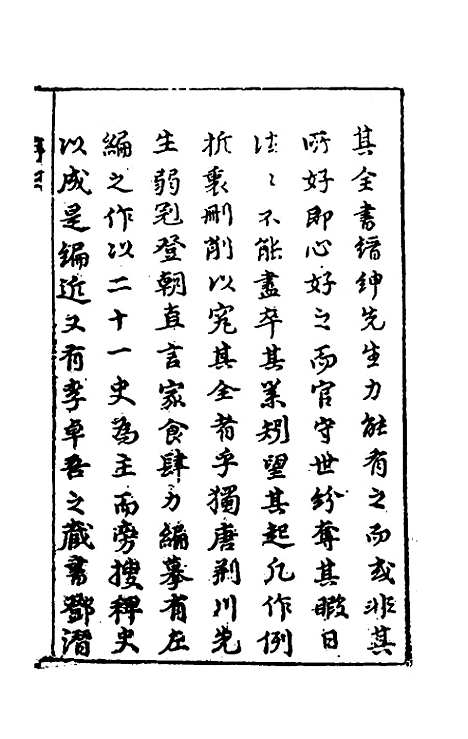 其全書縉紳先生力能有之而或非其
所好即心好之而官守世紛奪其暇日
往〻不能盡卒其業矧望其起凡作例
折衷刪削以究其全者乎獨唐荊川先
生弱冠登朝直言家食肆力編摹有左
編之作以二十一史為主而旁搜稗史
以成是編近又有李卓吾之藏書鄧潛